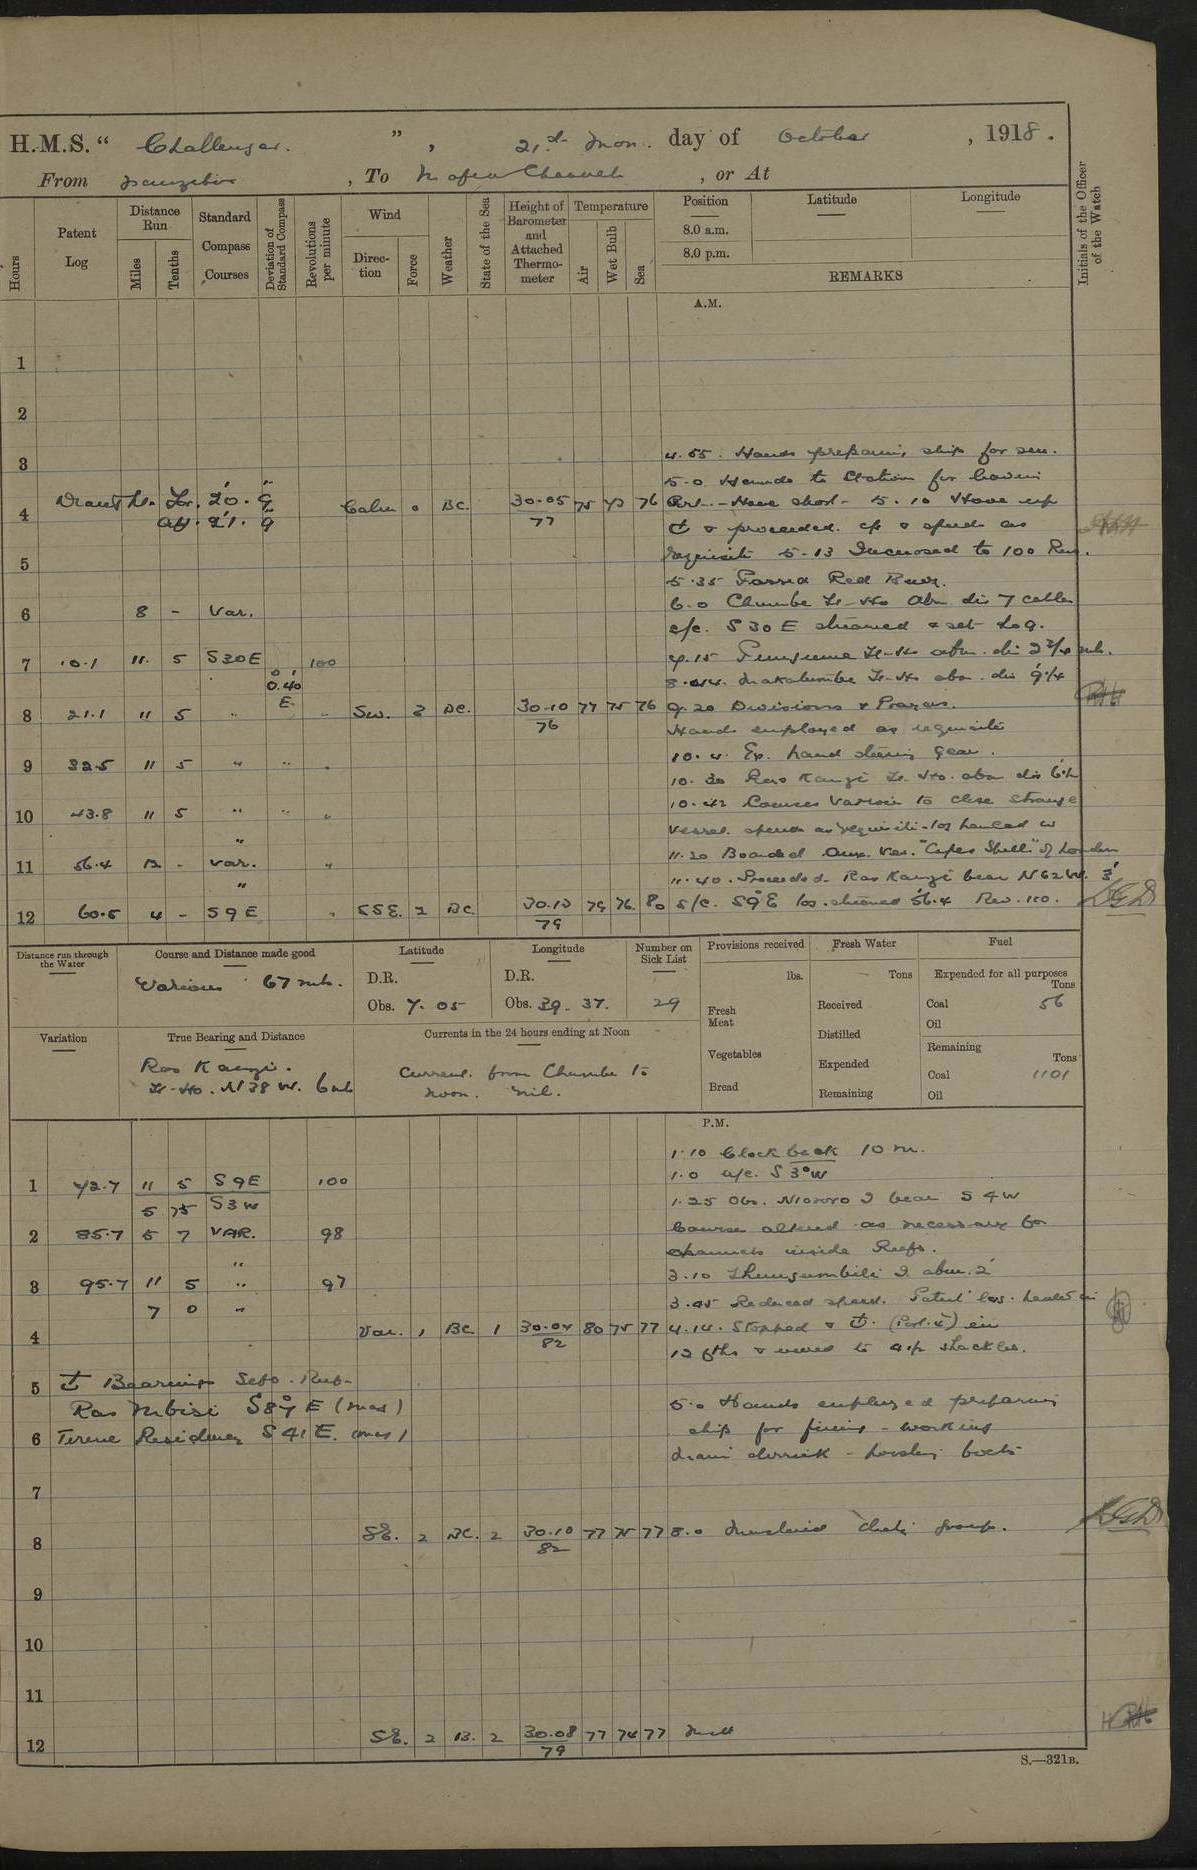 H.M.S. " Challenger. " , 21st Mon. day of October , 1918.
From Zanzibar , To Mafia Channel , or At
Hours
Patent Log
Distance Run
Miles
Tenths
Standard Compass Courses
Deviation of Standard Compass
Revolutions per minute
Wind
Direction
Force
Weather
State of the Sea
Height of Barometer and Attached Thermometer
Temperature
Air
Wet Bulb
Sea
Position
8.0 a.m.
8.0 p.m.
Latitude
Longitude
REMARKS
Initials of the Officer of the Watch
A.M.
1
2
3
4.55. Hands preparing ship for sea.
5.0 Hands to Station for leaving
Draught Ld. For. 20. 9"
4 Calm 0 BC. 30.05 75 73 76 Port. - Hove short - 5.10 Hove up
Aft. 21. 9 77
⚓ & proceeded. co & speed as
requisite 5.13 Increased to 100 Revs.
5
5.35 Passed Red Buoy.
6 8 - Var. 6.0 Chumbe Lt-Ho abm. dis 7 cables
a/c. S30E streamed & set Log.
7 10.1 11. 5 S30E 100 7.15 Pungume Lt-Ho abm. dis 2 3/4 mls.
0.40 E. 8.04. Makatumbe Lt-Ho abm. dis 9 1/4
8 21.1 11 5 " " SW. 2 BC. 30.10 77 75 76 9.20 Divisions & Prayers.
76 Hands employed as requisite
10.4. Ex. hand steering gear.
9 32.5 11 5 " " "
10.30 Ras Kanzi Lt. Ho. abm dis
10.42 Courses Various to close strange
10 43.8 11 5 " " "
vessel. speed as requisite - log hauled in
11 56.4 12 - Var. " 11.20 Boarded Aux. Ves. "Cape Shell" of London
11.40. Proceeded. Ras Kanzi bear N62W. 3'
12 60.5 4 - S9E " SSE. 2 BC. 30.13 79 76 80 s/c. S9E log streamed 56.4 Rev. 100.
79
Distance run through the Water
Course and Distance made good
Various 67 mls.
Latitude
D.R.
Obs. 7. 05
Longitude
D.R.
Obs. 39. 37.
Number on Sick List
29
Provisions received
lbs.
Fresh Meat
Vegetables
Bread
Fresh Water
Tons
Received
Distilled
Expended
Remaining
Fuel
Expended for all purposes
Tons
Coal 56
Oil
Remaining
Tons
Coal 1101
Oil
Variation
True Bearing and Distance
Ras Kanzi.
Lt-Ho. N38W. 6 mls
Currents in the 24 hours ending at Noon
Current. from Chumbe to
noon. Nil.
P.M.
1.10 Clock back 10 m.
1.0 a/c. S3°W
1 72.7 11 5 S9E 100
5 75 S3W 1.25 Obs. Niororo I bear S4W
2 85.7 5 7 VAR. 98 Course altered as necessary for
channels inside Reefs.
3 95.7 11 5 " 97 3.10 I. abm. 2'
7 0 " 3.45 Reduced speed. Patent log. hauled in
4 Var. 1 BC. 1 30.04 80 75 77 4.14. Stopped & ⚓. (Port.) in
82 12 fths & veered to shackles.
5 ⚓ Bearings
Ras Mbisi S87E (mag) 5.0 Hands employed preparing
6 Tirene Residency S41E. (mag) ship for firing - working
main derrick - hoisting boats
7
8 SE. 2 BC. 2 30.10 77 75 77 8.0
82
9
10
11
12 SE. 2 B. 2 30.08 77 74 77
79
S.—321B.